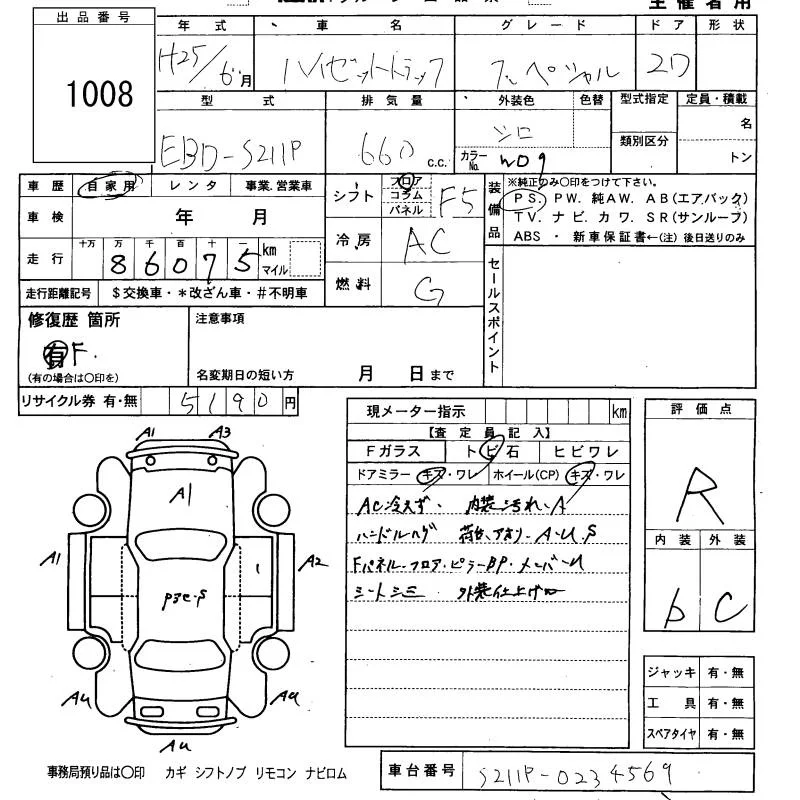 主催者用
出品番号
1008
年式 車名 グレード ドア 形状
H25/6月 ハイゼットトラック スペシャル 2D
型式 排気量 外装色 色替 型式指定 定員・積載
EBD-S211P 660 c.c. シロ 類別区分 名
カラーNo. W09 トン
車歴 自家用 レンタ 事業.営業車
車検 年 月
走行 十万 万 千 百 十 一 km マイル
86075
走行距離記号 $交換車・*改ざん車・#不明車
シフト フロア コラム パネル F5
冷房 AC
燃料 G
装備品
※純正のみ〇印をつけて下さい。
PS. PW. 純AW. AB(エアバック)
TV. ナビ. カワ. SR(サンルーフ)
ABS ・ 新車保証書←(注)後日送りのみ
セールスポイント
修復歴 箇所
有 F.
(有の場合は〇印を)
注意事項
名変期日の短い方 月 日まで
リサイクル券 有・無 5190円
現メーター指示 km
【査定員記入】
Fガラス トビ石 ヒビワレ
ドアミラー キズ・ワレ ホイール(CP) キズ・ワレ
AC冷えず. 内装汚れ.A
ハンドルハゲ 荷台.アオリ-A.U.S
Fパネル-フロア.ピラーBP.メンバーU
シートシミ 外装仕上げ
評価点
R
内装 外装
b C
A1 A3
A1
A1 A2
AU AU
AU
ジャッキ 有・無
工具 有・無
スペアタイヤ 有・無
事務局預り品は〇印 カギ シフトノブ リモコン ナビロム
車台番号 S211P-0234569